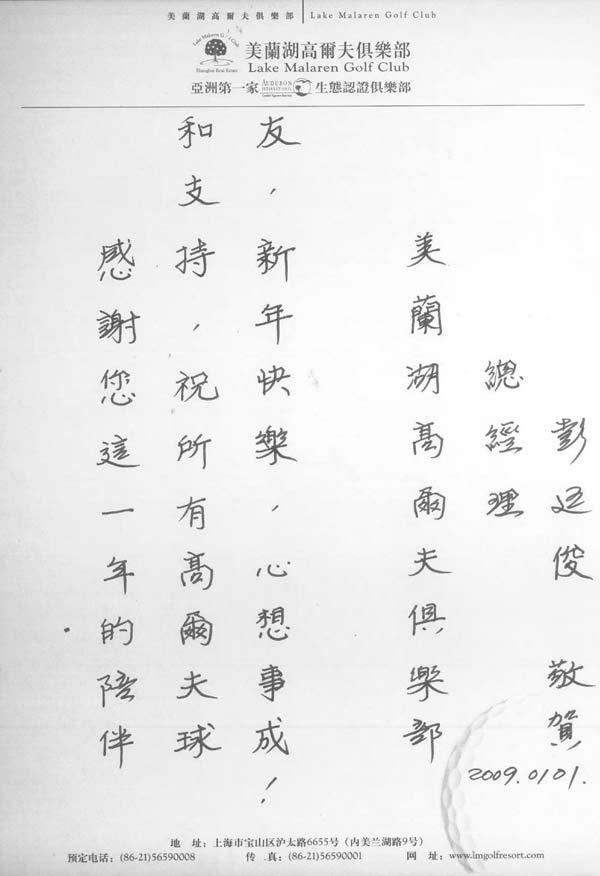 美蘭湖高爾夫俱樂部 | Lake Malaren Golf Club
美蘭湖高爾夫俱樂部
Lake Malaren Golf Club
Shanghai Real Estate
亞洲第一家 AUDUBON INTERNATIONAL 生態認證俱樂部
感謝您這一年的陪伴
和支持，祝所有高爾夫球
友，新年快樂，心想事成！
美蘭湖高爾夫俱樂部
總經理
彭廷俊 敬賀
2009.0101.
地 址：上海市宝山区沪太路6655号（内美兰湖路9号）
预定电话：(86-21)56590008 传 真：(86-21)56590001 网 址：www.lmgolfresort.com